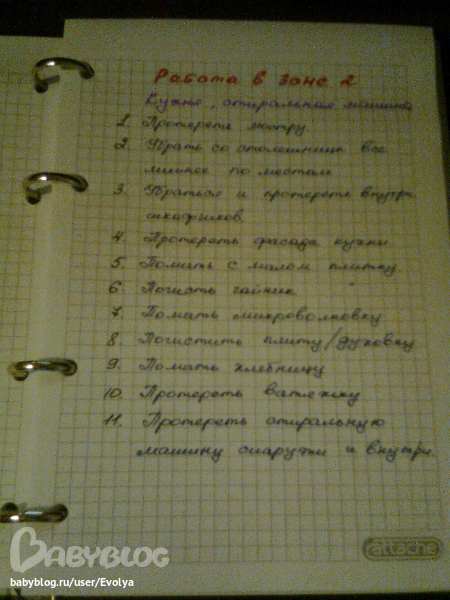 Работа в зоне 2
Кухне, стиральная машина
1. Протереть люстру
2. Убрать со столешниц все
лишнее по местам
3. Убраться и протереть внутри
шкафчиков
4. Протереть фасада кухни
5. Помыть с мылом плитку
6. Почисть чайник
7. Помыть микроволновку
8. Почистить плиту/духовку
9. Помыть хлебницу
10. Протереть вытяжку
11. Протереть стиральную
машину снаружи и внутри.
attache
BABYBLOG
babyblog.ru/user/Evolya